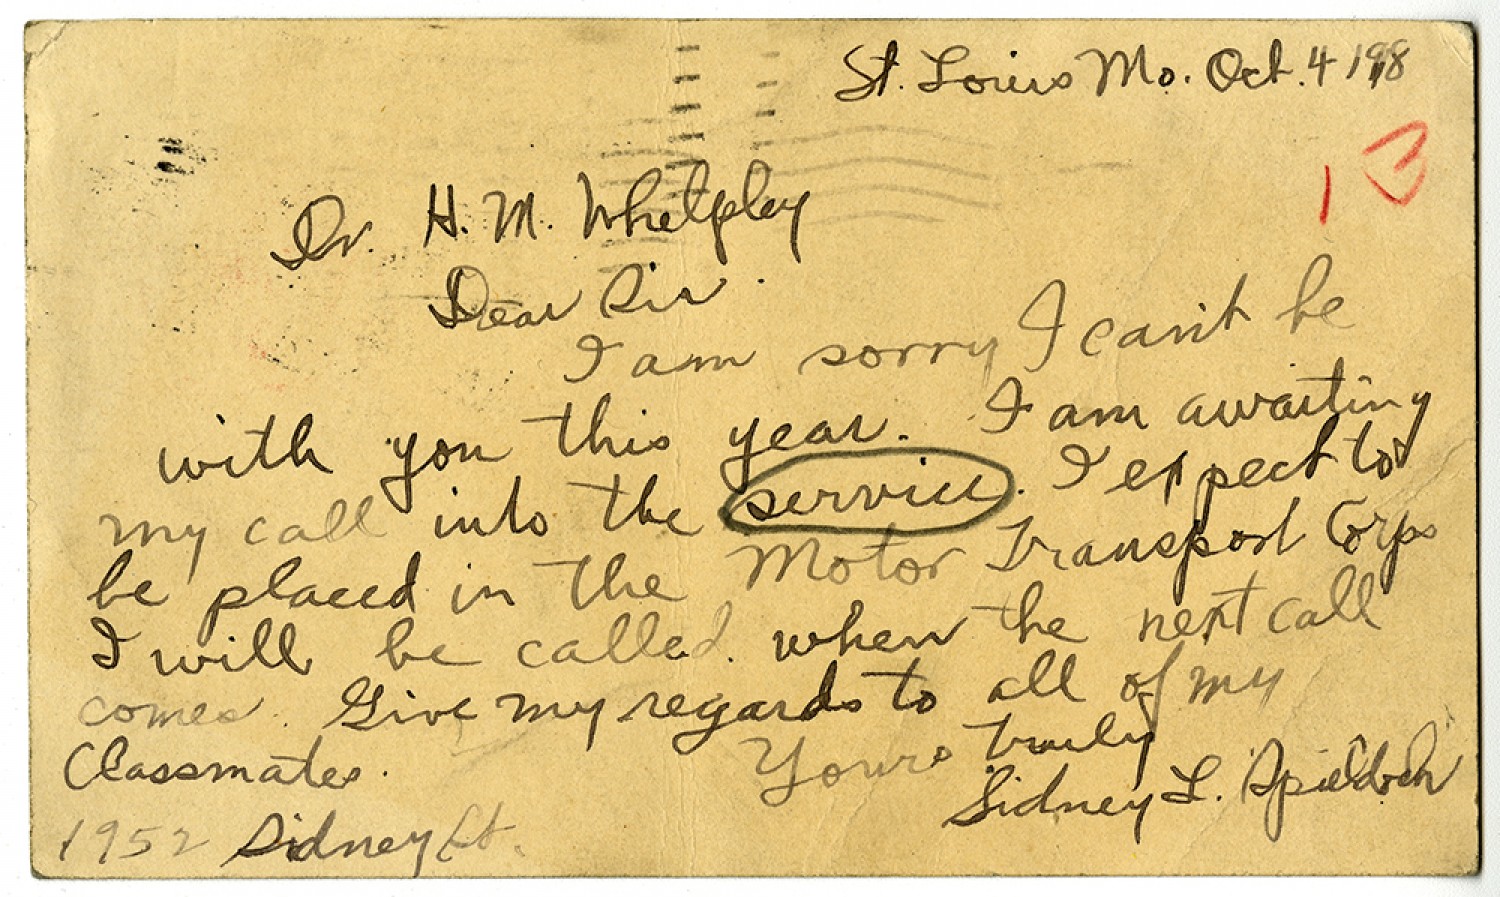 St. Louis Mo. Oct. 4 1918
13
Dr. H. M. Whelpley
Dear Sir.
I am sorry I can't be
with you this year. I am awaiting
my call into the service. I expect to
be placed in the Motor Transport Corps
I will be called when the next call
comes. Give my regards to all of my
Classmates.
Yours truly
Sidney L.
1952 Sidney St.